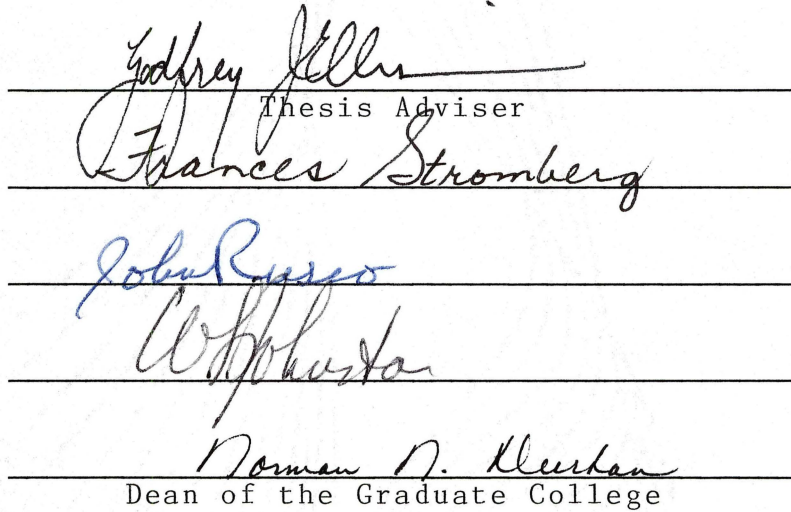 Godfrey J Ellis
Thesis Adviser
Frances Stromberg
John Rusco
Johnston
Norman N. Durham
Dean of the Graduate College